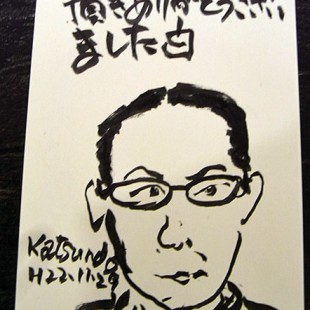 頂きありがとうござい
ました白
Katsundo
H22.11.29